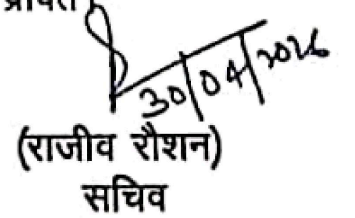 30/04/2026
(राजीव रौशन)
सचिव